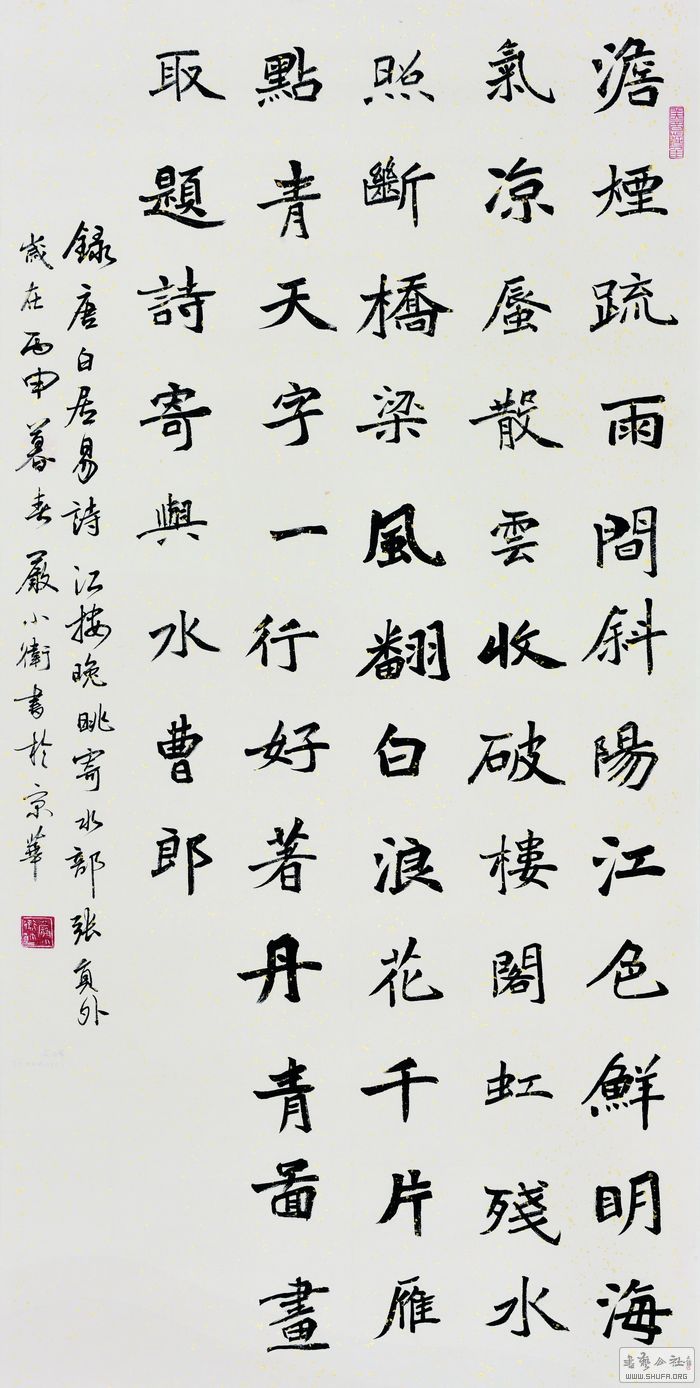 澹煙疏雨間斜陽江色鮮明海
氣凉蜃散雲收破樓閣虹殘水
照斷橋梁風翻白浪花千片雁
點青天字一行好著丹青啚畫
取題詩寄與水曹郎
録唐白居易詩江樓晚眺寄水部張員外
歲在丙申暮春嚴小衛書於京華
書藝公社
WWW.SHUFA.ORG